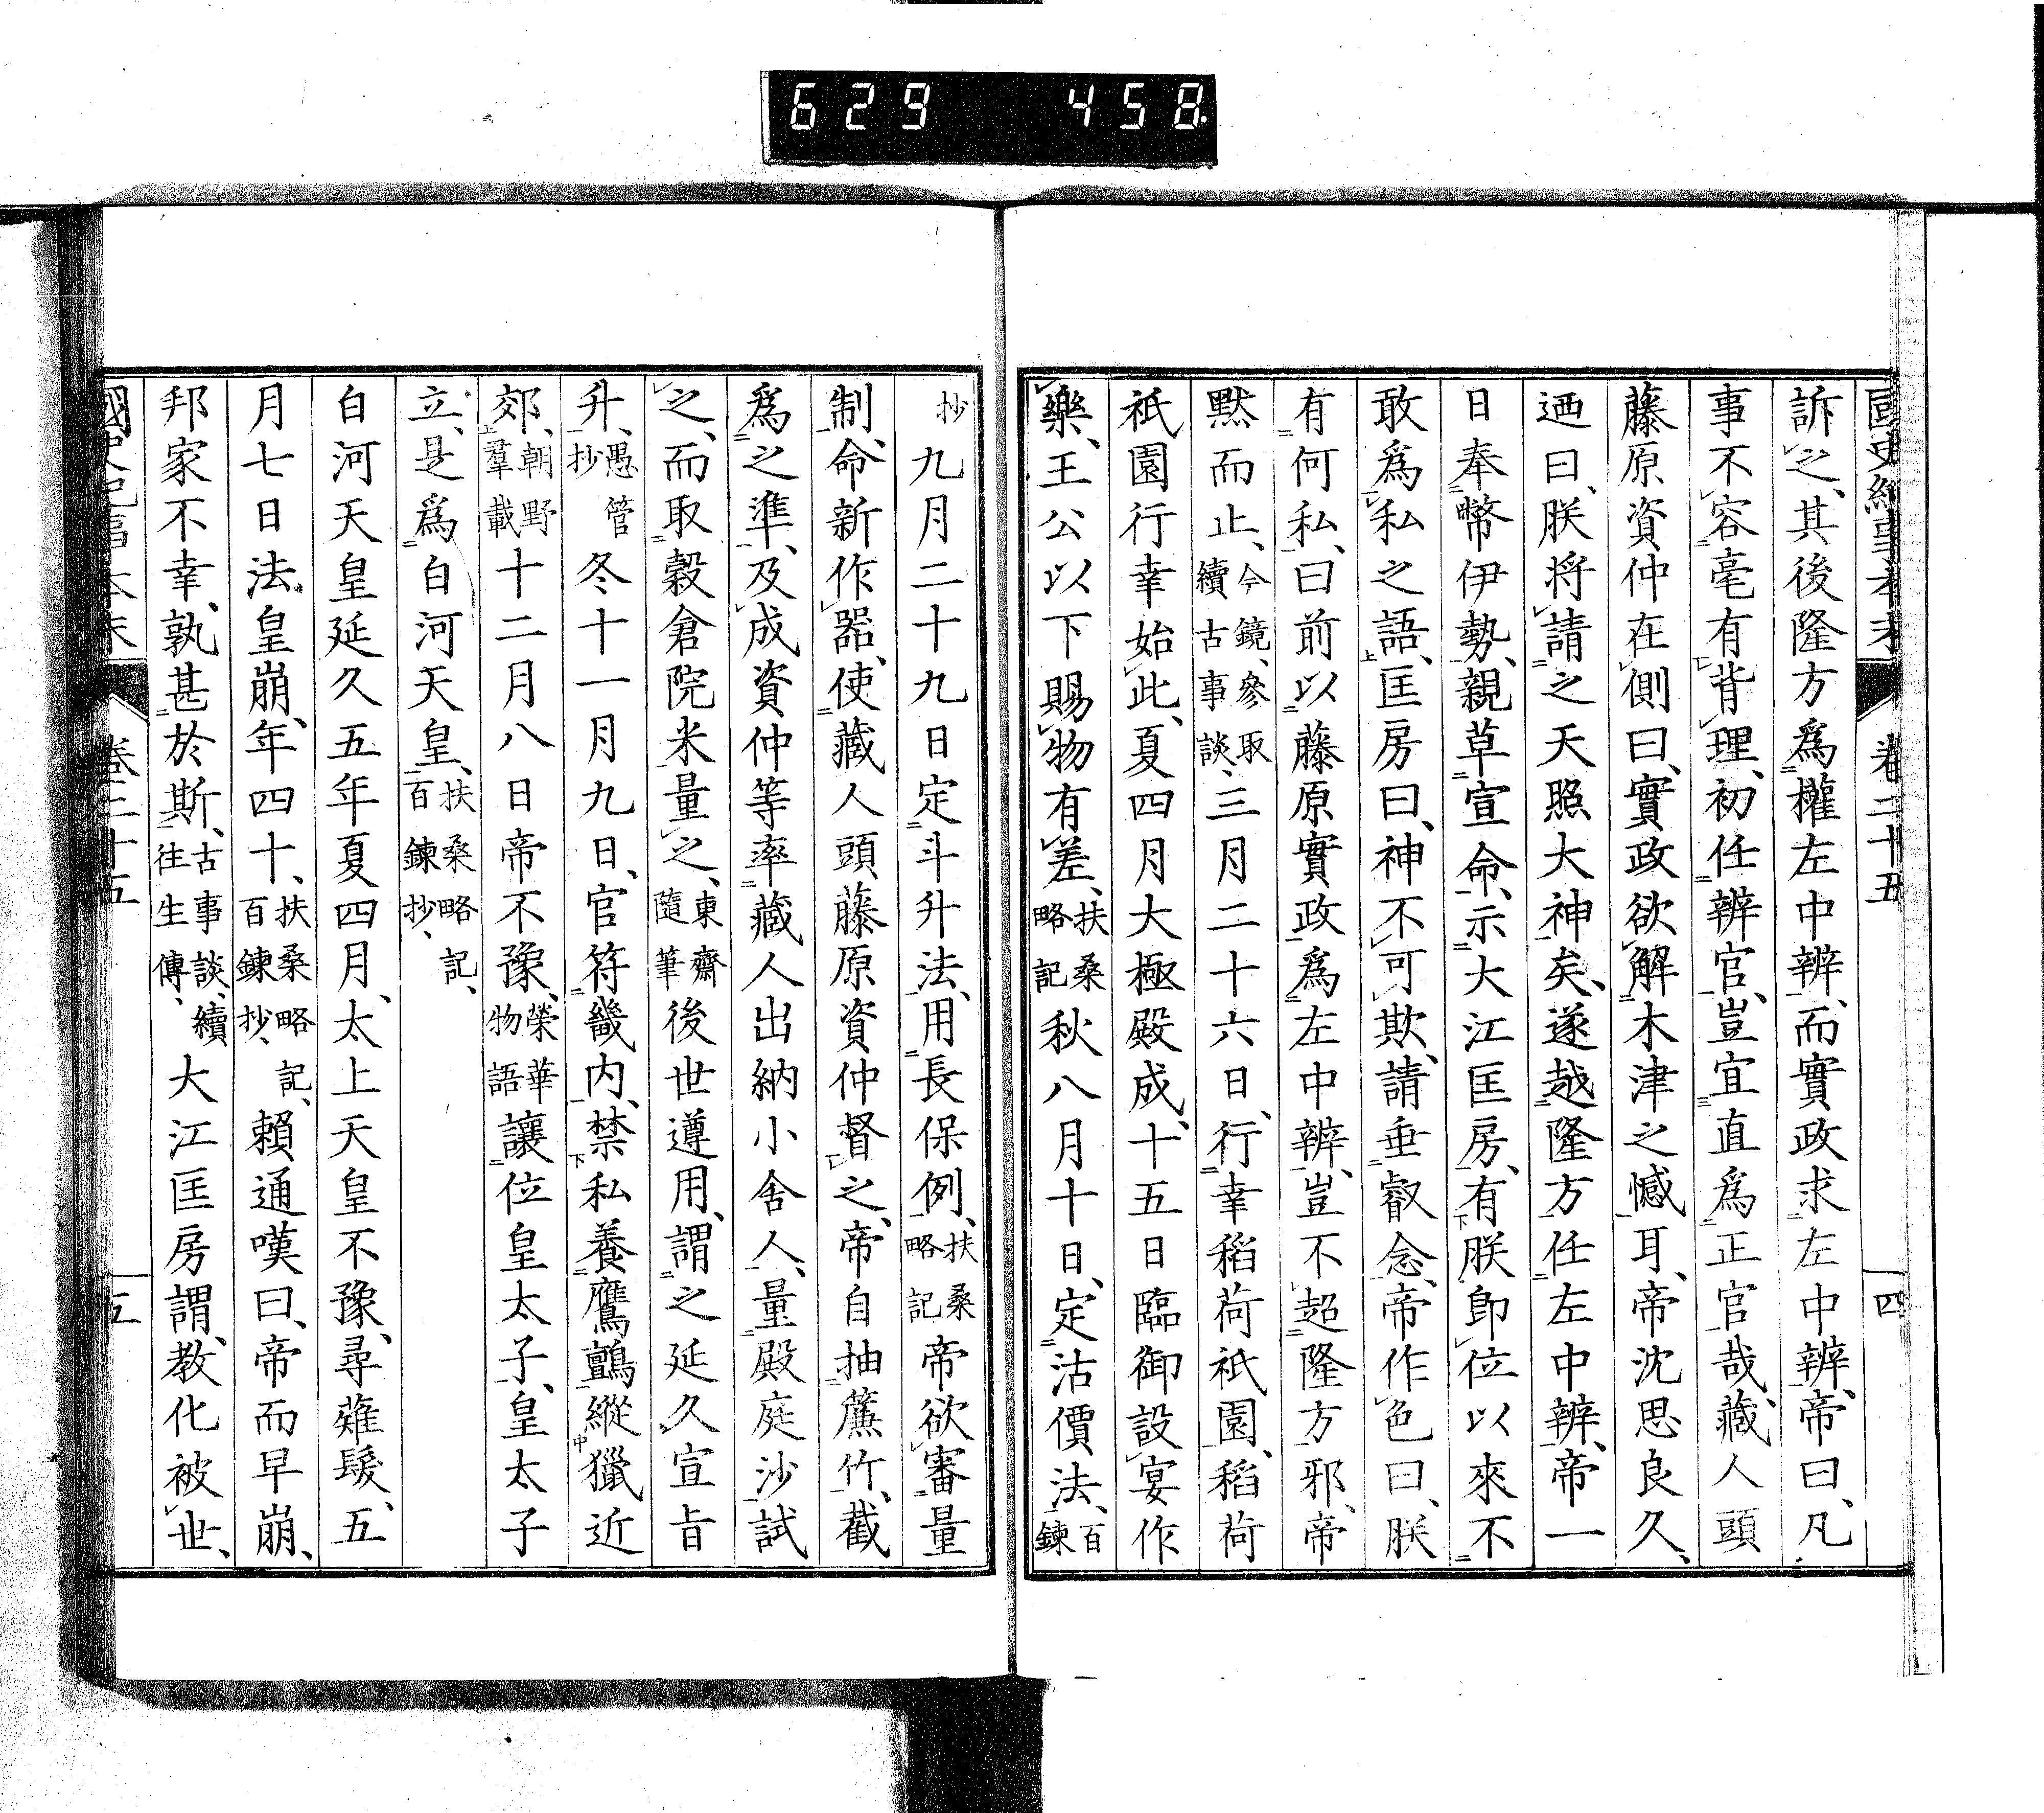 629 458
國史紀事本末 卷二十五 四
訴之、其後隆方爲權左中辨、而實政求左中辨、帝曰、凡
事不容毫有背理、初任辨官、豈宜直爲正官哉、藏人頭
藤原資仲在側曰、實政欲解木津之憾耳、帝沈思良久、
迺曰、朕將請之天照大神矣、遂越隆方任左中辨、帝一
日奉幣伊勢、親草宣命、示大江匡房、有朕卽位以來不
敢爲私之語、匡房曰、神不可欺、請垂叡念、帝作色曰、朕
有何私、曰前以藤原實政爲左中辨、豈不超隆方邪、帝
默而止、今鏡、參取續古事談、三月二十六日、行幸稻荷祇園、稻荷
祇園行幸始此、夏四月大極殿成、十五日臨御設宴作
樂、王公以下賜物有差、扶桑略記秋八月十日、定沽價法、百鍊
抄九月二十九日定斗升法、用長保例、扶桑略記帝欲審量
制、命新作器、使藏人頭藤原資仲督之、帝自抽簾竹、截
爲之準、及成資仲等率藏人出納小舍人、量殿庭沙試
之、而取穀倉院米量之、東齋隨筆後世遵用、謂之延久宣旨
升、愚管抄冬十一月九日、官符畿内、禁私養鷹鸇縱獵近
郊、朝野羣載十二月八日帝不豫、榮華物語讓位皇太子、皇太子
立、是爲白河天皇、扶桑略記、百鍊抄、
白河天皇延久五年夏四月、太上天皇不豫、尋薙髮、五
月七日法皇崩、年四十、扶桑略記、百鍊抄、賴通嘆曰、帝而早崩、
邦家不幸、孰甚於斯、古事談、續往生傳、大江匡房謂、教化被世、
國史紀事本末 卷二十五 五